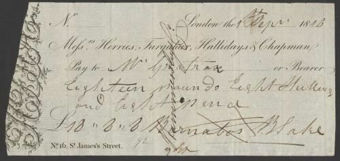 No.
London the 1st Sepr. 1810
Messrs. Herries, Farquhar, Halliday & Chapman
Pay to Mr or Bearer
Eighteen pounds Eight Shillings
and Eight pence
£18 " 8 " 8 Barnabas Blake
No. 16, St. James's Street.